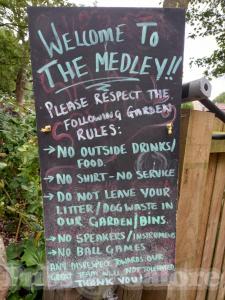 WELCOME TO
THE MEDLEY!!
PLEASE RESPECT THE
FOLLOWING GARDEN
RULES:
→ NO OUTSIDE DRINKS/
FOOD.
→ NO SHIRT - NO SERVICE
→ DO NOT LEAVE YOUR
LITTER/DOG WASTE IN
OUR GARDEN/BINS.
→ NO SPEAKERS/INSTRUMENTS
→ NO BALL GAMES
ANY DISRESPECT TOWARDS OUR
GREAT TEAM WILL NOT TOLERATED
THANK YOU!